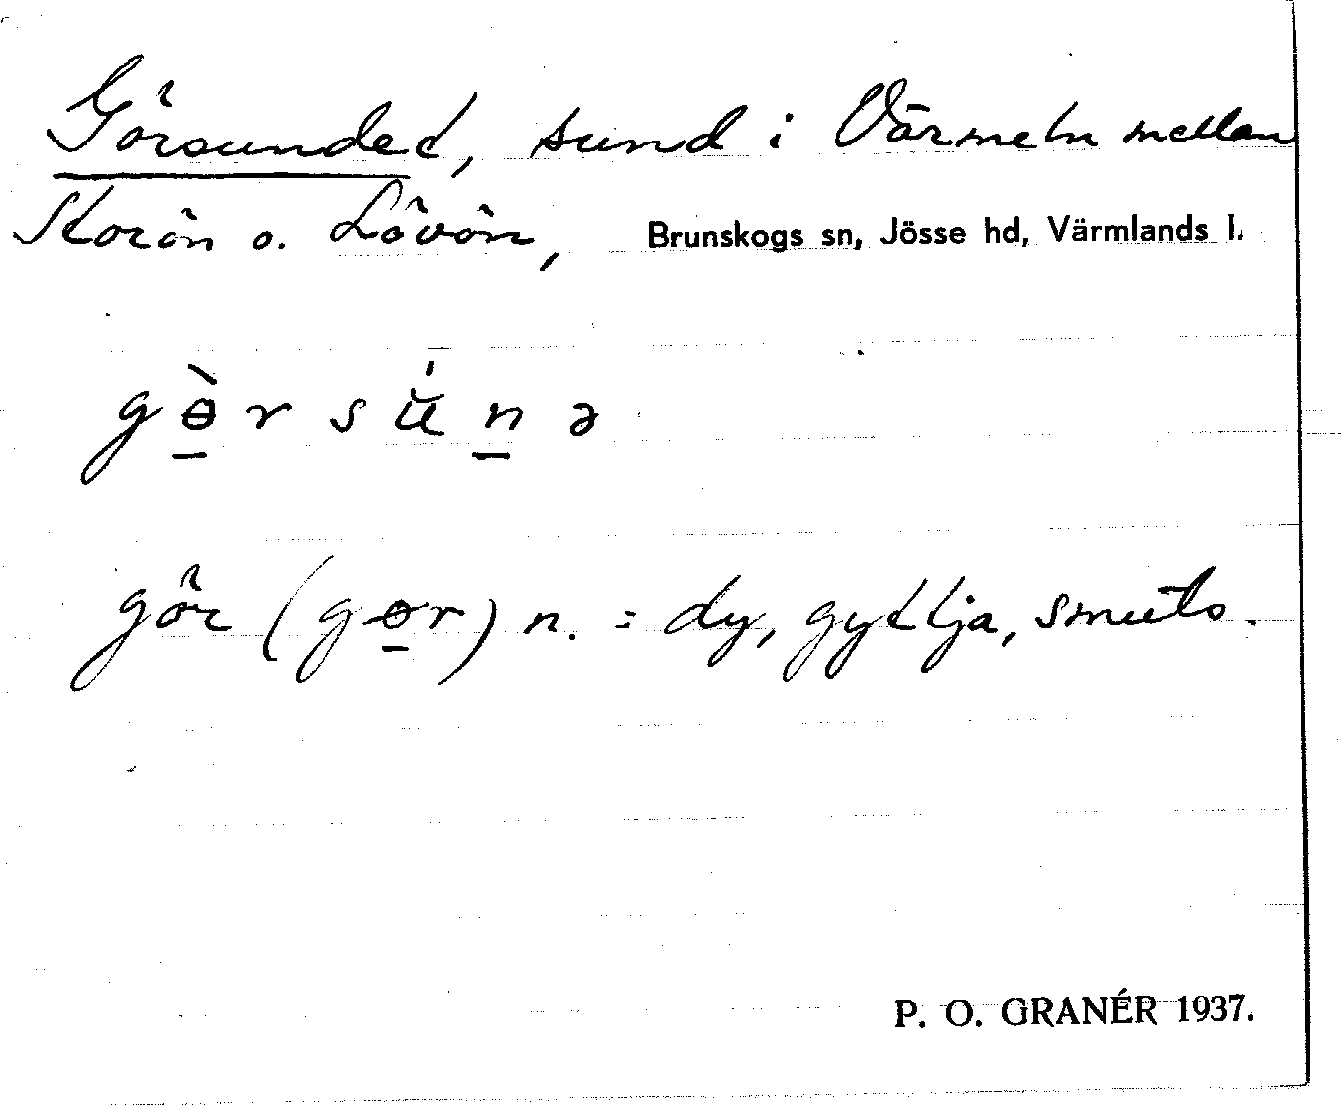 Görsundet, sund i Värmeln mellan
Storön o. Lövön, Brunskogs sn, Jösse hd, Värmlands l.
gɵ̠̀rsú̆n̠ə
gör (gɵ̠r) n. = dy, gyttja, smuts.
P. O. GRANÉR 1937.